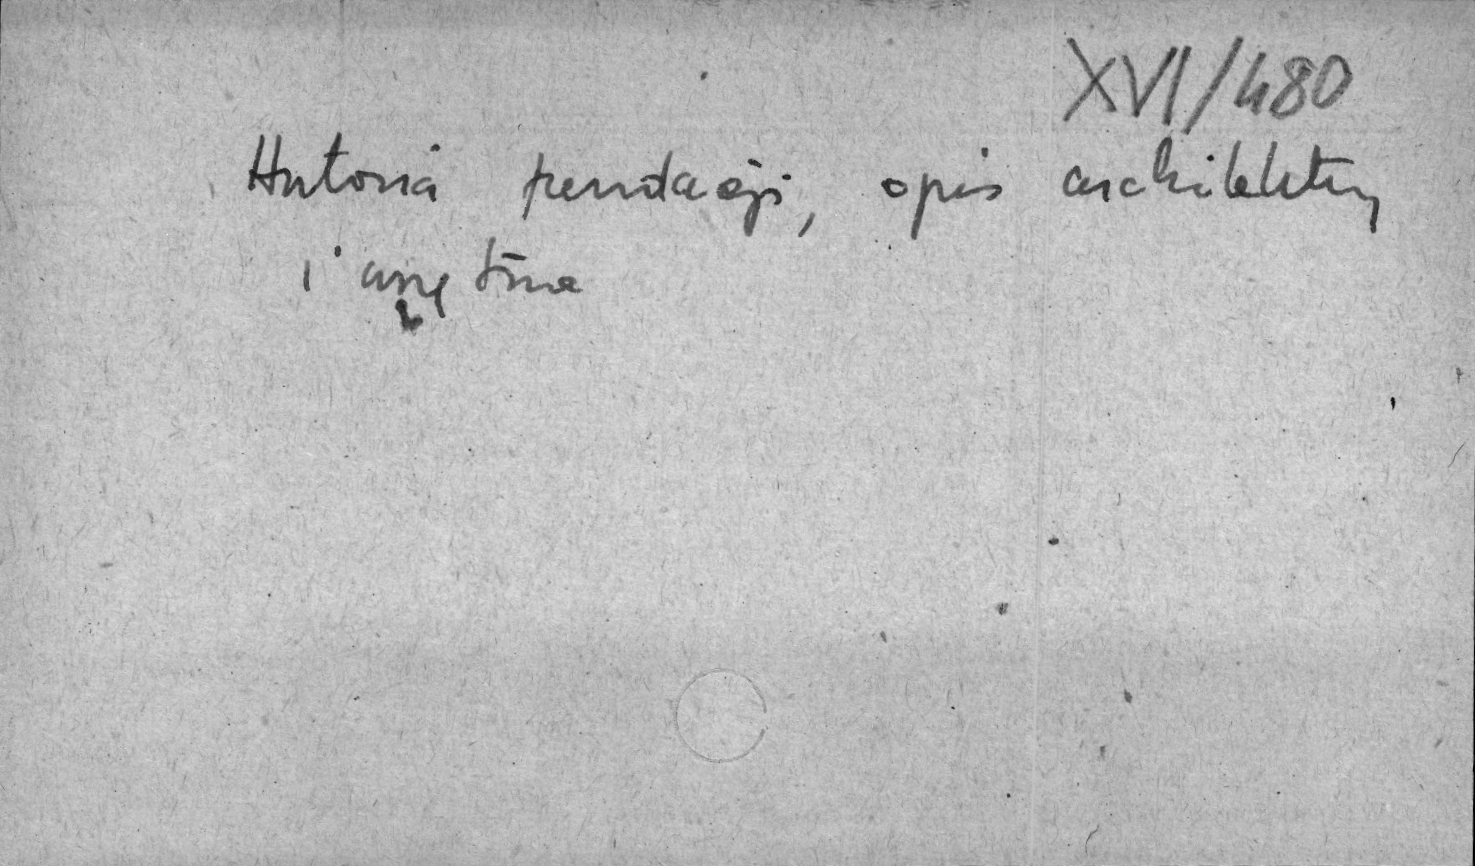 XVI/480
Historia fundacji, opis architektury
i wnętrza